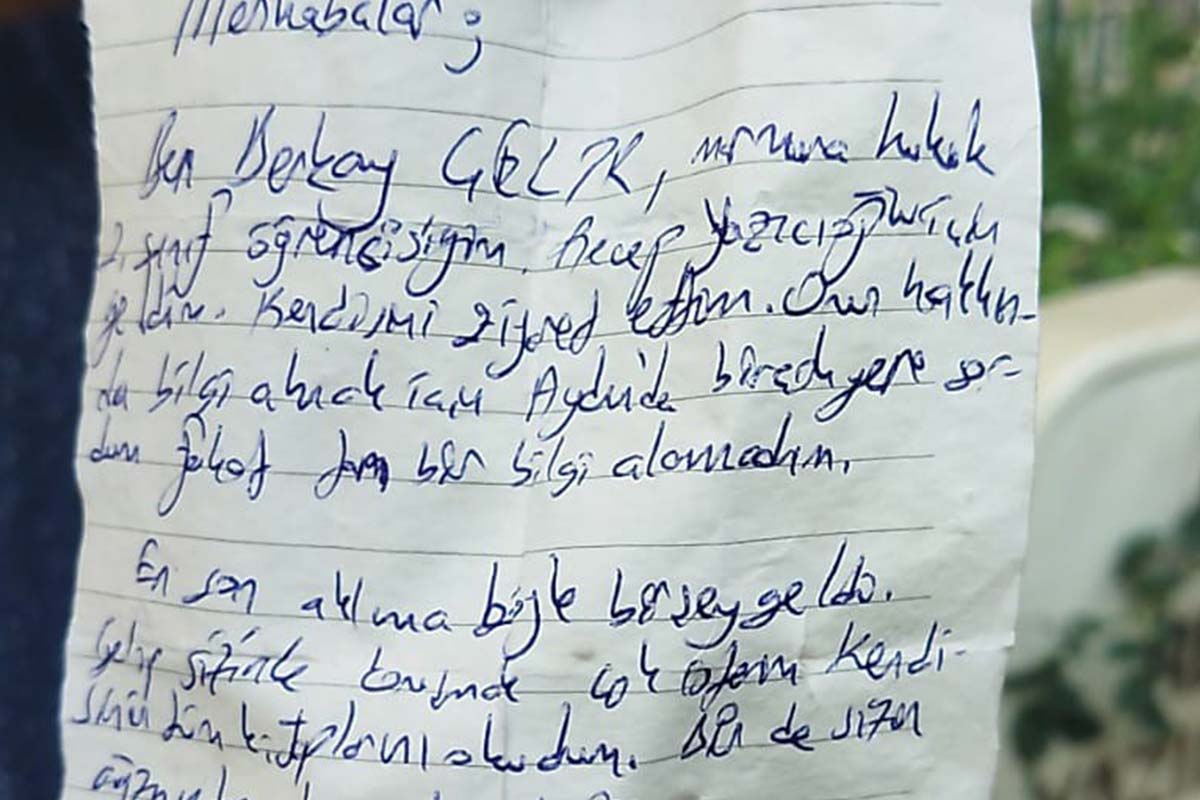 Merhabalar;
Ben Berkay ÇELİK, marmara hukuk
2. sınıf öğrencisiyim. Recep Yazıcıoğlu için
geldim. Kendisini ziyaret ettim. Onun hakkın-
da bilgi almak için Aydın'da birçok yere sor-
dum fakat tam bir bilgi alamadım.
En son aklıma böyle birşey geldi.
Gelip sizinle konuşmak çok istedim Kendi-
sinin tüm kitaplarını okudum. Bir de sizin